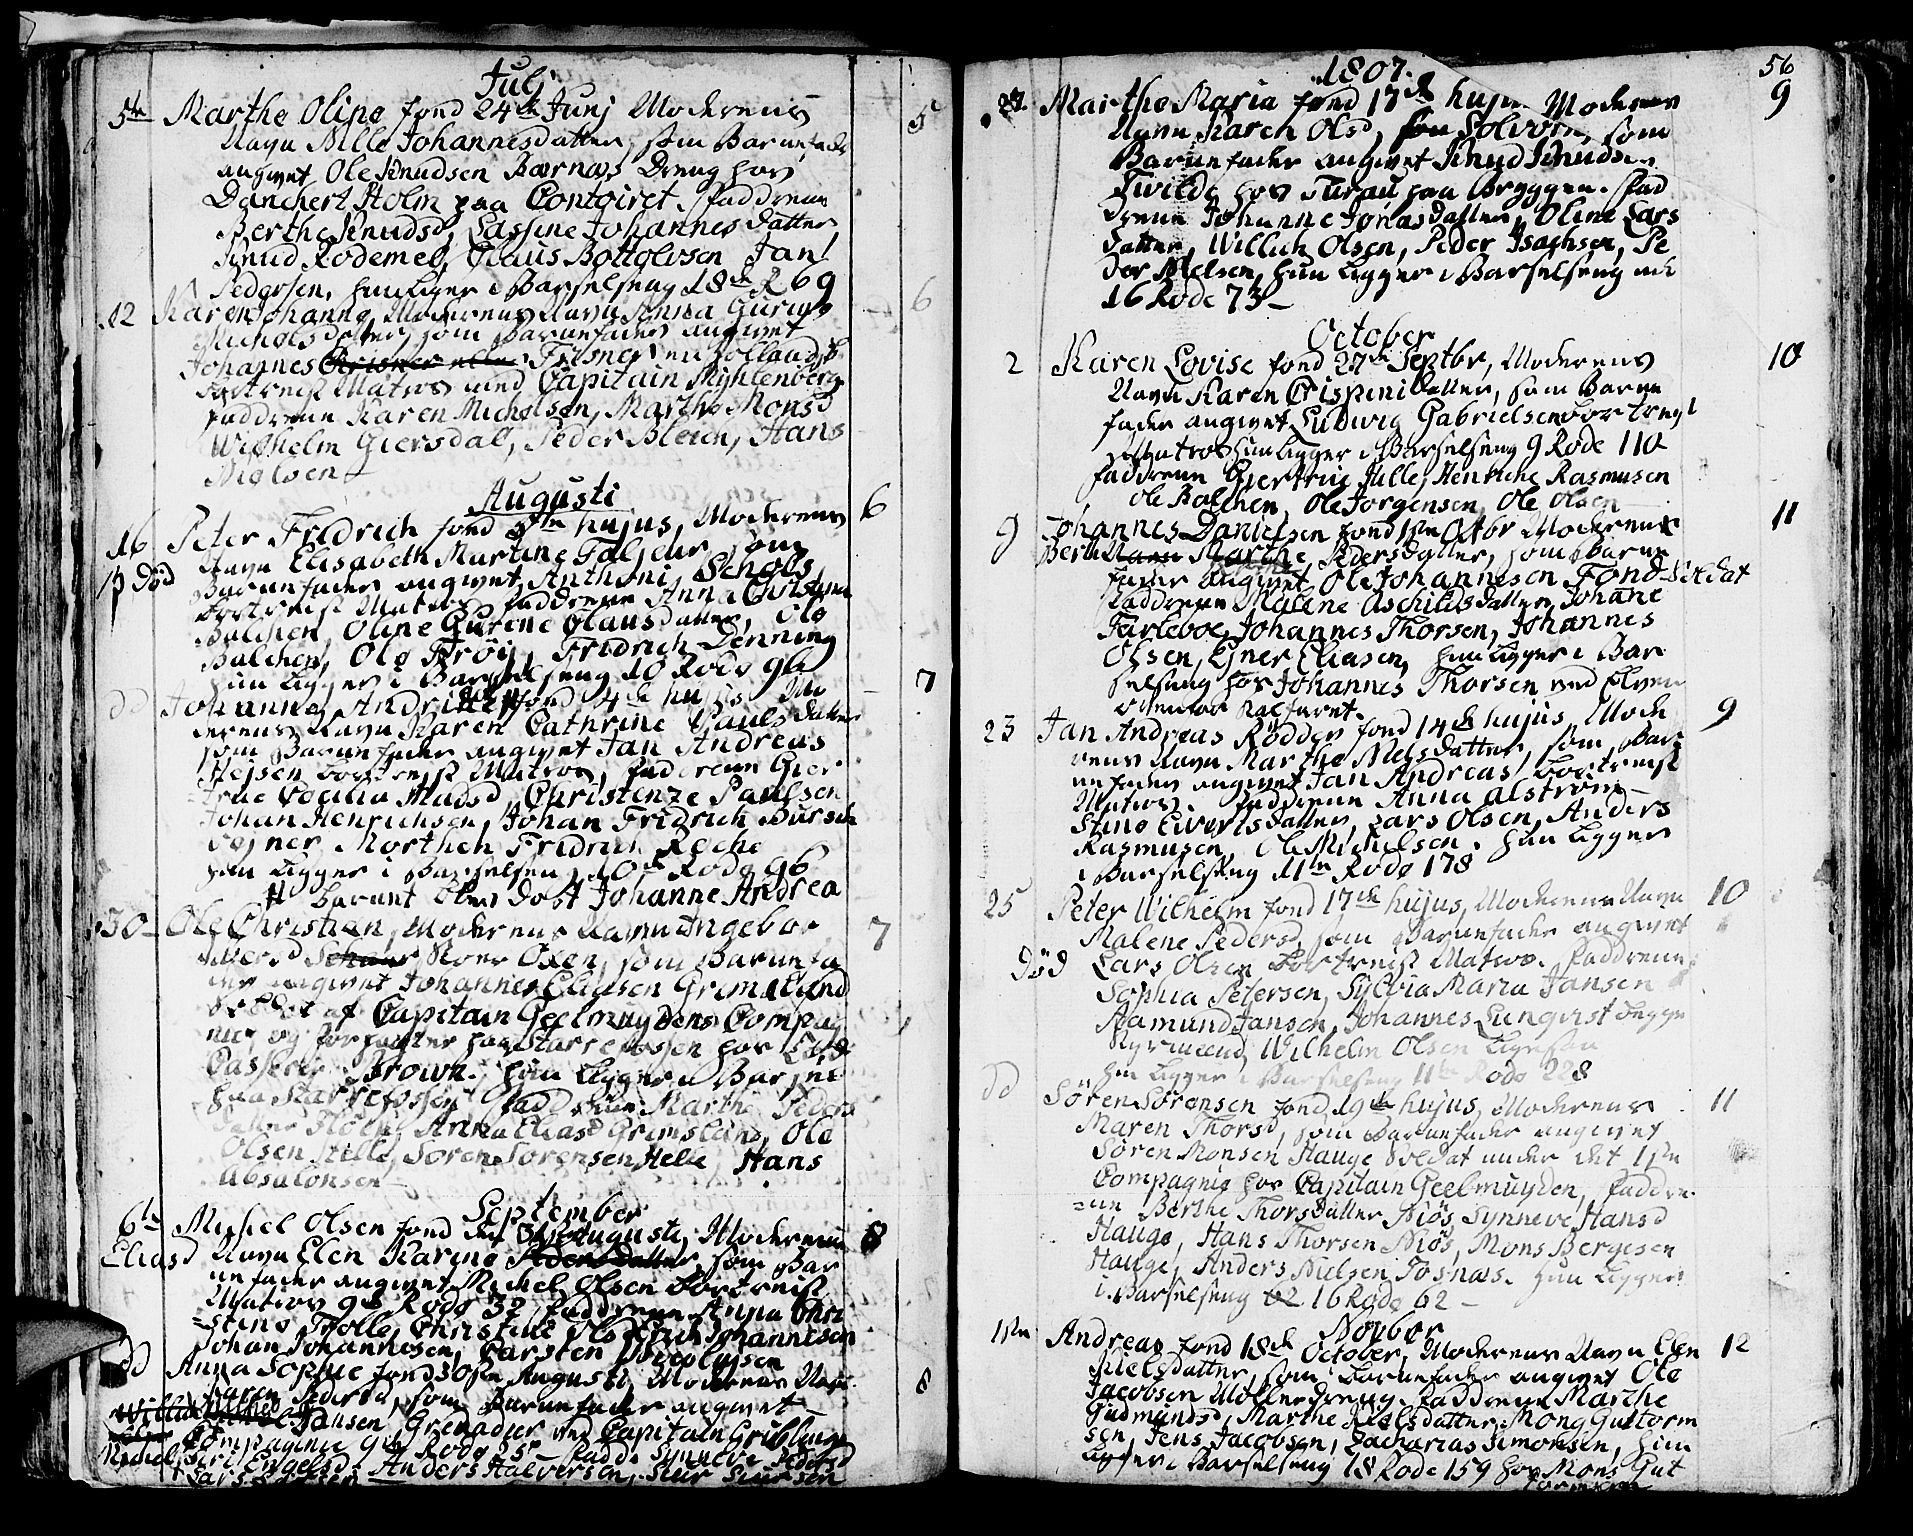 Julj
5te Marthe Oline fond 24de Junj Moderens 5
Navn Nille Johannesdatter, som Barnefader
angivet Ole Knudsen Bærnæs Dreng hos
Danchert Holm paa Contoiret. Faddrene
Berthe Knudsd, Lassine Johannesdatter
Knud Rodemel, Claus Bottolvsen Jan
Pedersen, hun ligger i Barselseng 18de R 69
12 Karen Johanne, Moderens Navn Anna Gurine 6
Micholsdatter, som Barnefader angivet
Johannes Frisner en Hollandsk
bortreist Matros med Capitain Myhlenberg
faddrene Karen Michelsen, Marthe Monsd
Wilhelm Giersdal, Peder Bleich, Hans
Nielsen
Augusti
16 Peter Fridrich fond 9de hujus, Moderens 6
Navn Elisabeth Martine, som
død Barnefader angivet Anthoni Schols
bortreist Matros faddrene Anna Christina
Balchen, Oline Gurine Olausdatter, Ole
Balchen, Ole Frøy, Fridrich Denning
hun ligger i Barselseng 10 Rode 96
dd Johanne Andrea fond 4de hujus Mo 7
derens Navn Karen Cathrine Paulsdatter
som Barnefader angivet Jan Andreas
Heisen bortreist Matros, faddrene Gier
true Cecilia Madsd, Christenze Paulsen
Johan Henrichsen, Johan Fridrich
Morthen Fridrich Reche
hun ligger i Barselseng 10de Rode 96
Barnet blev døbt Johanne Andrea
30 Ole Christian, Moderens Navn Ingebor 7
Olsen, som Barnefa
der angivet Johannes Eliasen Grimsland
Soldat af Capitain Geelmuydens Compag
nie, og forpagter paa Starrefossen hos
Brown. hun ligger i Barsel
paa Starrefossen faddrene Marthe Peders
datter, Anna Eliasd Grimsland, Ole
Olsen Helle, Søren Sørensen Helle, Hans
Absalonsen
September
6te Michel Olsen fond den 31 Augusti, Moderens 8
Eliasd Navn Elen Karine Pedersdatter, som Bar
nefader angivet Michel Olsen bortreist
Matros 9de Rode 32, faddrene Anna Chri
stine Trolle, Christine Olsd, Erich Johannesen
Johan Johannesen, Carsten
dd Anna Sophie fond 30te Augusti, Moderens Navn 8
Karen Pedersd, som Barnefader angivet
Jansen, Grenadier ved Capitain Gribbings
Compagnie Rode 25 Fadd: Synneve Pedersd
Michel Siri Engelsd Anders Halversen, Siur Siursen
1807. 56
27. Marthe Maria fond 17de hujus Moderens 9
Navn Karen Olsd, som
Barnefader angivet Knud Knudsen
Twilde hos Thrau paa Bryggen. Fad
drene Johanne Jonasdatter, Oline Lars
datter, Willich Olsen, Peder Isachsen, Pe
der Nielsen, hun ligger i Barselseng udi
16 Rode 73
October
2 Karen Lovise fond 27de Septbr, Moderens 10
Navn Karen Crispinidatter, som Barne
fader angivet Ludwig Gabrielsen bortreist
Matros hun ligger i Barselseng 9 Rode 110
faddrene Giertrui Jülle, Henriche Rasmusen
Ole Balchen, Ole Jørgensen, Ole Olsen
9 Johannes Danielsen fond 1ste Octbr Moderens 11
Navn Marthe Pedersdatter, som Barne
fader angivet Ole Johannesen Fond Soldat
Faddrene Malene Aschildsdatter, Johane
Farleboe, Johannes Thorsen, Johannes
Olsen, Egner Eliasen, hun ligger i Bar
selseng hos Johannes Thorsen ved Elven
Kalfaret.
23 Jan Andreas Rødder fond 14de hujus, Mode 9
rens Navn Marthe Nielsdatter, som Bar
nefader angivet Jan Andreas, bortreist
Matros. faddrene Anna Alstrøm
Stine Ewertsdatter, Lars Olsen, Anders
Rasmusen, Ole Michelsen. hun ligger
i Barselseng 11te Rode 178
25 Peter Wilhelm fond 17de hujus, Moderens Navn 10
Malene Pedersd, som Barnefader angivet
død Lars Olsen bortreist Matros. Faddrene
Sophia Petersen, Sylvia Maria Jansen
Aamund Jansen, Johannes Lunqvist begge
Styrmænd, Wilhelm Olsen
hun ligger i Barselseng 11te Rode 228
dd Søren Sørensen fond 19de hujus, Moderens 11
Maren Thorsd, som Barnefader angivet
Søren Monsen Hauge Soldat under det 1ste
Compagnie hos Capitain Geelmuyden, Faddre
ne Berthe Thorsdatter Niøs, Synneve Hansd
Hauge, Hans Thorsen Niøs, Mons Bergesen
Hauge, Anders Nielsen Fosnæs. hun ligger
i Barselseng 62 16 Rode 62
Novbor
1ste Andreas fond 18de October, Moderens Navn Elen 12
Nielsdatter, som Barnefader angivet Ole
Jacobsen Møllerdreng, faddrene Marthe
Gudmundsd, Marthe Nielsdatter, Mons Guttorm
sen, Jens Jacobsen, Zacharias Simonsen, hun
ligger i Barselseng 18 Rode 159 hos Mons Gut